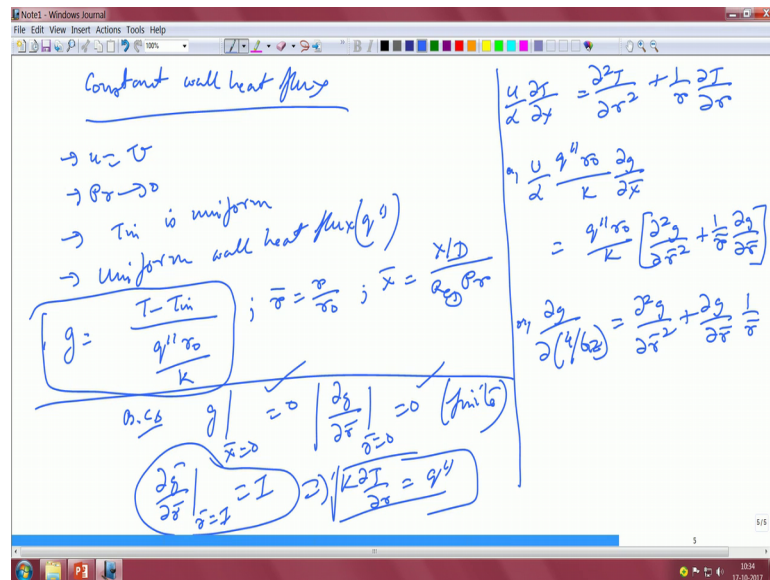 Note1 - Windows Journal
File Edit View Insert Actions Tools Help
100%
Constant wall heat flux
→ u = U
→ Pr → 0
→ Tin is uniform
→ Uniform wall heat flux (q'')
g = (T - Tin) / (q'' r₀ / K) ; r̄ = r/r₀ ; x̄ = (x/D) / (Re_D Pr)
B.Cs g|_{x̄=0} = 0 | ∂g/∂r̄|_{r̄=0} = 0 (finite)
∂g/∂r̄|_{r̄=1} = 1 ⇒ K ∂T/∂r = q''
u/α ∂T/∂x = ∂²T/∂r² + 1/r ∂T/∂r
or, U/α q'' r₀/K ∂g/∂x̄
= q'' r₀/K [∂²g/∂r̄² + 1/r̄ ∂g/∂r̄]
= ∂²g/∂r̄² + ∂g/∂r̄ 1/r̄
5/5
5
10:34
17-10-2017